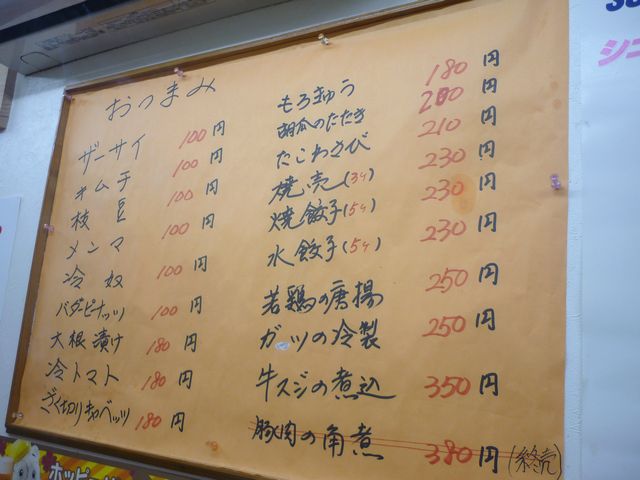 おつまみ
ザーサイ 100円
キムチ 100円
枝豆 100円
メンマ 100円
冷奴 100円
バターピーナッツ 100円
大根漬け 180円
冷トマト 180円
ざく切りキャベッツ 180円
もろきゅう 180円
胡瓜のたたき 200円
たこわさび 210円
焼売(3ケ) 230円
焼餃子(5ケ) 230円
水餃子(5ケ) 230円
若鶏の唐揚 250円
ガツの冷製 250円
牛スジの煮込 350円
豚肉の角煮 380円(終売)
ホッピー